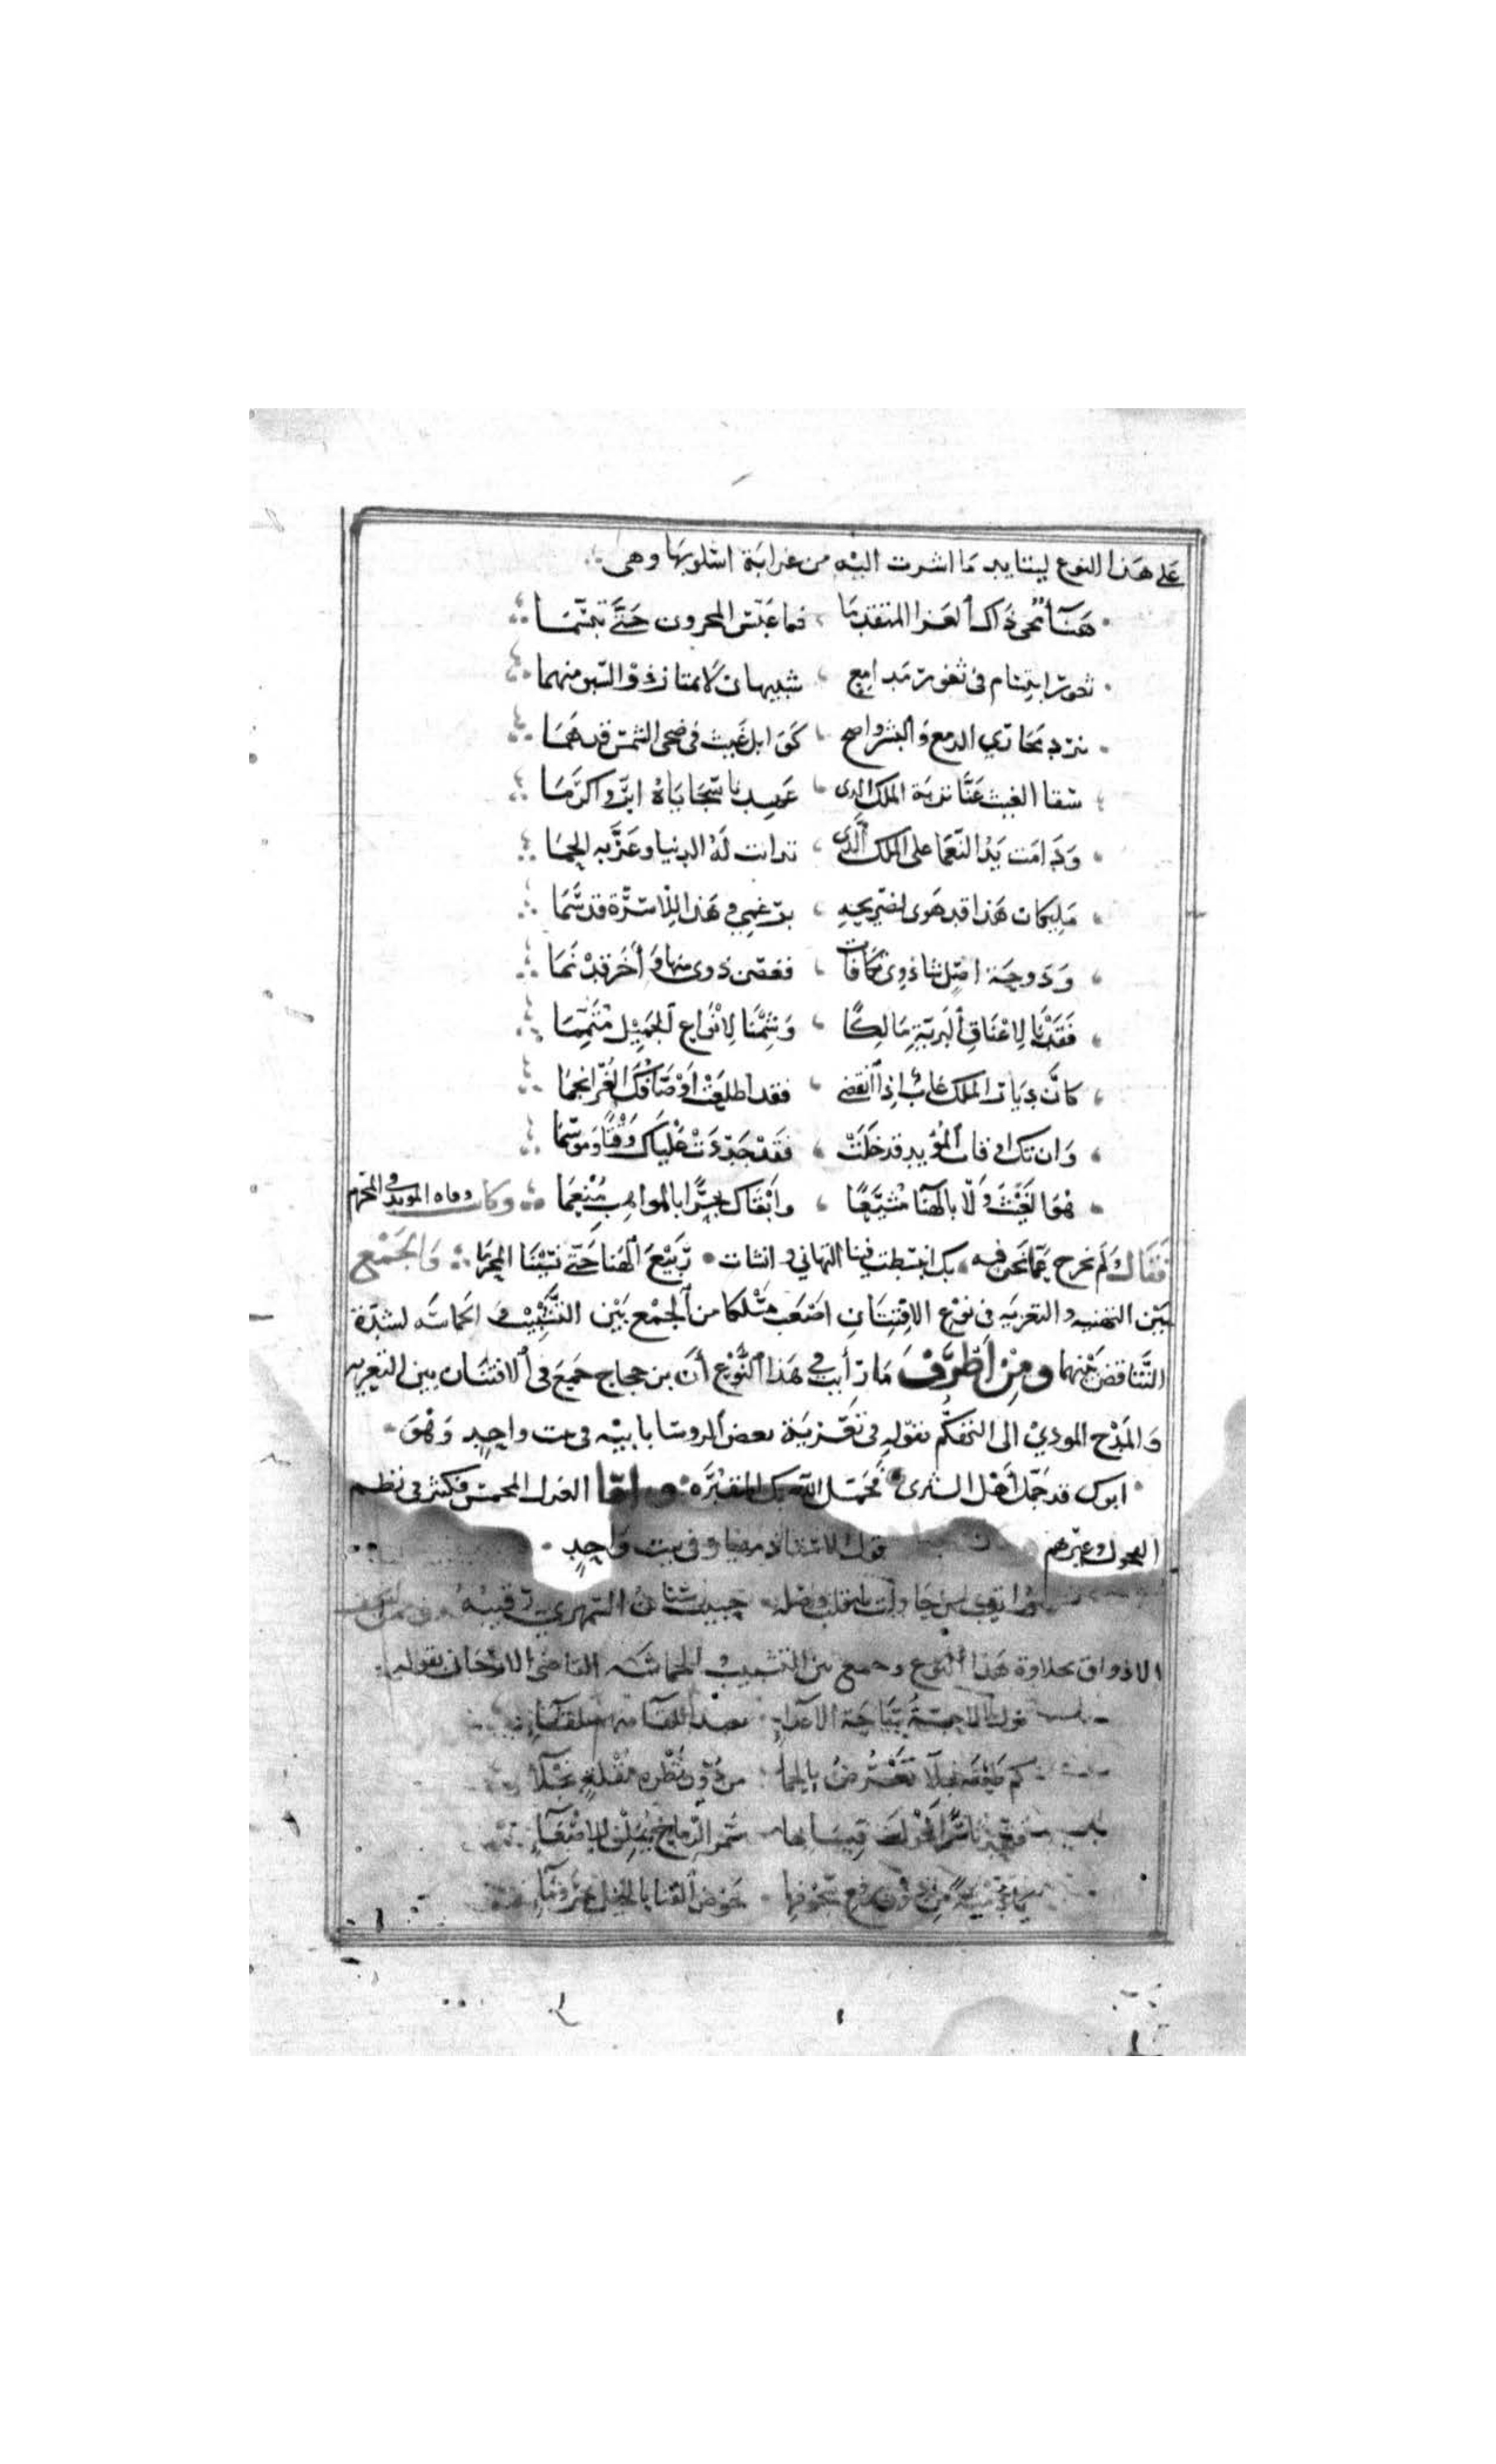 على هذا النوع ليتايد ما اشرت اليه من غرابة اسلوبها وهى
هنآ محى ذاك العزا المتقدما فما عبس المحزون حتى تبسما
ثغور ابتسام فى ثغور مدامع شبيهان لا يمتاز ذو السبق منهما
نرد مجاري الدمع والبشر واضح كوابل غيث فى ضحى الشمس قد هما
سقا الغيث عنا تربة الملك الذى عهدنا سجاياه ابر واكرما
ودامت يد النعما على الملك الذى تدانت له الدنيا وعز به الحما
مليكان هذا قد هوى لضريحه برغمي وهذا للاسرة قد سما
ودوحة اصل شاذوى تكافات فغصن ذوى منها وأخر قد نما
فقدنا لاعناق البرية مالكا وشمنا لانواع الجميل متمما
كان ديار الملك غاب اذا انقضى فقد اطلعت اوصافك الغر انجما
وان تك اوقات المؤيد قد خلت فقد جددت علياك وقتا وموسما
هو الغيث ولا بالهنا مشيعا وابقاك بحرا بالمواهب منعما وكانت وفاه المويد فى المحرم
فقال ولم نخرج عما نحن فيه بك انبسطت فينا التهاني وانشات ربيع الهنا حتى نسينا المحرما والجمع
بين التهنيه والتعزيه فى نوع الافتنان اصعب مسلكا من الجمع بين التشبيب والحماسه لشدة
التناقض بينهما ومن اظرف ما رأيت فى هذا النوع أن بن حجاج جمع فى الافتنان بين التعزيه
والمدح المودي الى التهكم بقوله فى تعزية بعض الروسا بابيه فى بيت واحد وهو
ابوك قد جمل أهل الثرى فجمل الله بك المقبره واما الغزل المحمس فكثير فى نظم
الفحول وغيرهم قول الاستاذ وفى بيت واحد
حاولت بالقلب وصله حبيب سنان السمهري رقيبه
الاذواق بحلاوة هذا النوع وجمع بين التشبيب والحماسه القاضى الارجانى بقوله
نزلت الاحبة ساحة الاعداء
كم طعنة نجلا تعترض بالحما من دون نظره مقلة نجلآ
فتحدثا سرا فحول قبابها سمر الرماح يملن للاصغآ
من دون رفع سجوفها خوض القنا بالخيل